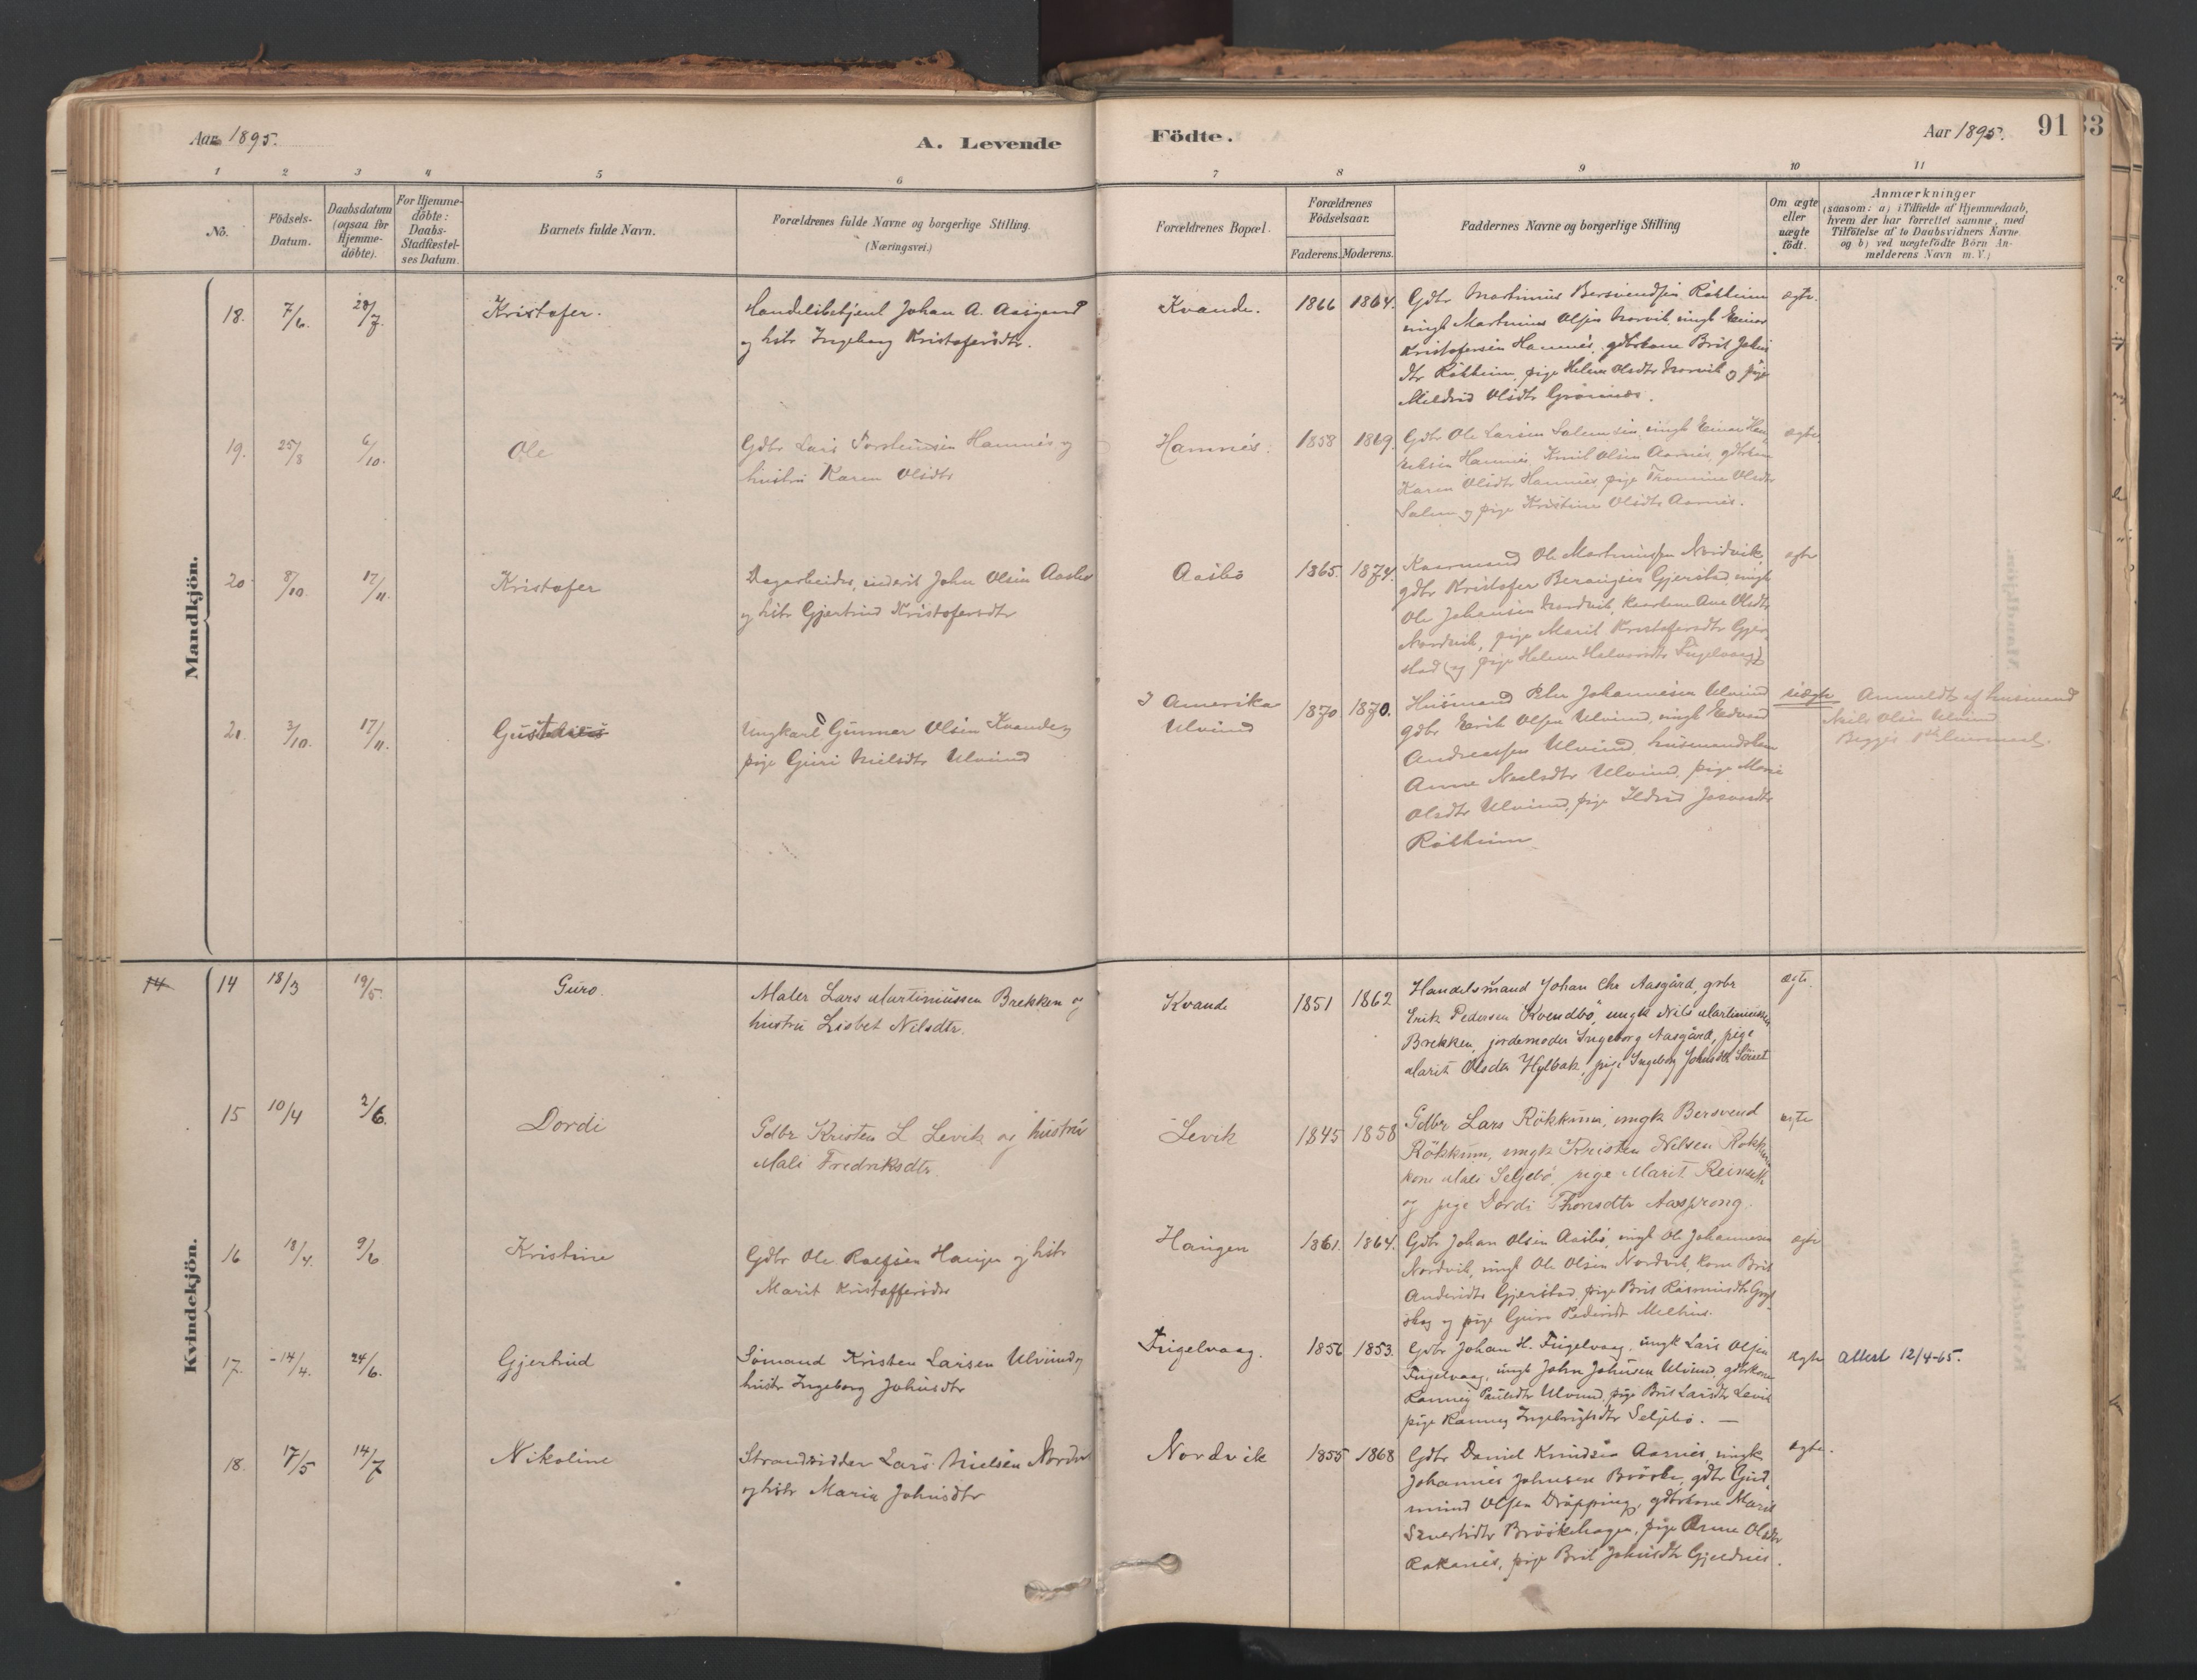 Aar 1895.
A. Levende
Födte.
Aar 1895.
91
33
1
2
3
4
5
6
7
8
9
10
11
No.
Födsels-
Datum.
Daabsdatum
(ogsaa for
Hjemme-
döbte).
For Hjemme-
döbte:
Daabs-
Stadfæstel-
ses Datum.
Barnets fulde Navn.
Forældrenes fulde Navne og borgerlige Stilling.
(Næringsvei.)
Forældrenes Bopæl.
Forældrenes
Födselsaar.
Faderens.
Moderens.
Faddernes Navne og borgerlige Stilling
Om ægte
eller
uægte
födt.
Anmærkninger
(saasom: a) i Tilfælde af Hjemmedaab,
hvem der har forrettet samme, med
Tilföielse af to Daabsvidners Navne.
og b) ved uægtefödte Börn An-
melderens Navn m.V.)
Mandkjön.
18.
7/6.
28/7.
Kristofer.
Handelsbetjent Johan A. Aasgaard
og hstr Ingeborg Kristofersdtr.
Kvande.
1866
1864.
Gdbr Martinus Bersvendsen Röthum
ungk Martinus Olsen Norvik, ungk Einar
Kristofersen Hamnes, gdbrkone Brit Johns
dtr Röthum, pige Helene Olsdtr Norvik og pige
Mildrid Olsdtr Grönnes.
ægte.
19.
25/8
6/10.
Ole
Gdbr Lars Torstensen Hamnes og
hustru Karen Olsdtr
Hamnes.
1858
1869.
Gdbr Ole Larsen ungk Einar Hen
Hamnes, Emil Olsen Aarnes, gdbrkone
Karen Olsdtr Hamnes pige Thomine Olsdtr
og pige Kristine Olsdtr Aarnes.
ægte
20
8/10.
17/11.
Kristofer
Dagarbeider, inderst John Olsen Aasbö
og hstr Gjertrud Kristofersdtr
Aasbö
1865.
1874.
Kaarmand Ole Martinussen Nordvik,
gdbr Kristofer Gjerstad, ungk
Ole Johansen Nordvik, kaarkone Ane Olsdtr
Nordvik, pige Marit Kristofersdtr Gjer
stad (og pige Helene Fugelvaag)
ægte
21.
3/10.
17/11.
Gustav
Ungkarl Gunnar Olsen Kvande og
pige Guri Nielsdtr Ulvund
I Amerika
Ulvund
1870
1870.
Husmand Peder Johannesen Ulvund
gdbr Erik Olsen Ulvund, ungk Edvard
Andreassen Ulvund, husmandskone
Anne Neelsdtr Ulvund, pige Marie
Olsdtr Ulvund, pige Ildrid
Röthum
uægte
Anmeldt af husmand
Neils Olsen Ulvund
Begges 1ste
Kvindekjön.
14
14
18/3
19/5.
Guro.
Maler Lars Martinussen Brekken og
hustru Lisbet Nilsdtr.
Kvande
1851
1862
Handelsmand Johan Chr Aasgård, grbr
Erik Pedersen Kvendbö, ungk Nils Martinussen
Brekken, jordemoder Ingeborg Aasgård, pige
Marit Olsdtr Hylbak, pige Ingeborg Johnsdtr
ægte.
15
10/4
2/6.
Dordi
Gdbr Kristen L Levik og hustru
Mali Fredriksdtr.
Levik
1845
1858
Gdbr Lars Rökkum, ungk Bersvend
Rökkum, ungk Kristen Nelsen Rökkum
kone Mali Seljebö, pige Marit Reinseth
og pige Dordi Thoresdtr Aasprong.
ægte
16
18/4.
9/6
Kristine
Gdbr Ole Rolfsen Haugen og hstr
Marit Kristoffersdtr
Haugen
1861.
1864.
Gdbr Johan Olsen Aasbö, ungk Ole Johannesen
Nordvik, ungk Ole Olsen Nordvik, kone Brit
Andersdtr Gjerstad, pige Brit Rasmusdtr
skog og pige Guro Pedersdtr Melhus.
ægte
17.
14/4.
24/6.
Gjertrud
Sömand Kristen Larsen Ulvund og
hustr Ingeborg Johnsdtr
Fugelvaag.
1856
1853.
Gdbr Johan H. Fugelvaag, ungk Lars Olsen
Fugelvaag, ungk John Johnsen Ulvund, gdbrkone
Ranneg Paulsdtr Ulvund, pige Brit Larsdtr Levik
pige Ranneg Ingebrigtsdtr Seljebö. —
ægte
Attest 12/4-65.
18.
17/5
14/7
Nikoline
Strandsidder Lars Nielsen Nordv
og hstr Maria Johnsdtr
Nordvik
1855
1868
Gdbr Daniel Knudsen Aarnes, ungk
Johannes Johnsen gdbr Gud
mund Olsen Dröpping, gdbrkone Marit
Sivertsdtr Bröskehagen, pige Anne Olsdtr
Rakanes, pige Brit Johnsdtr Gjeldnes.
ægte.